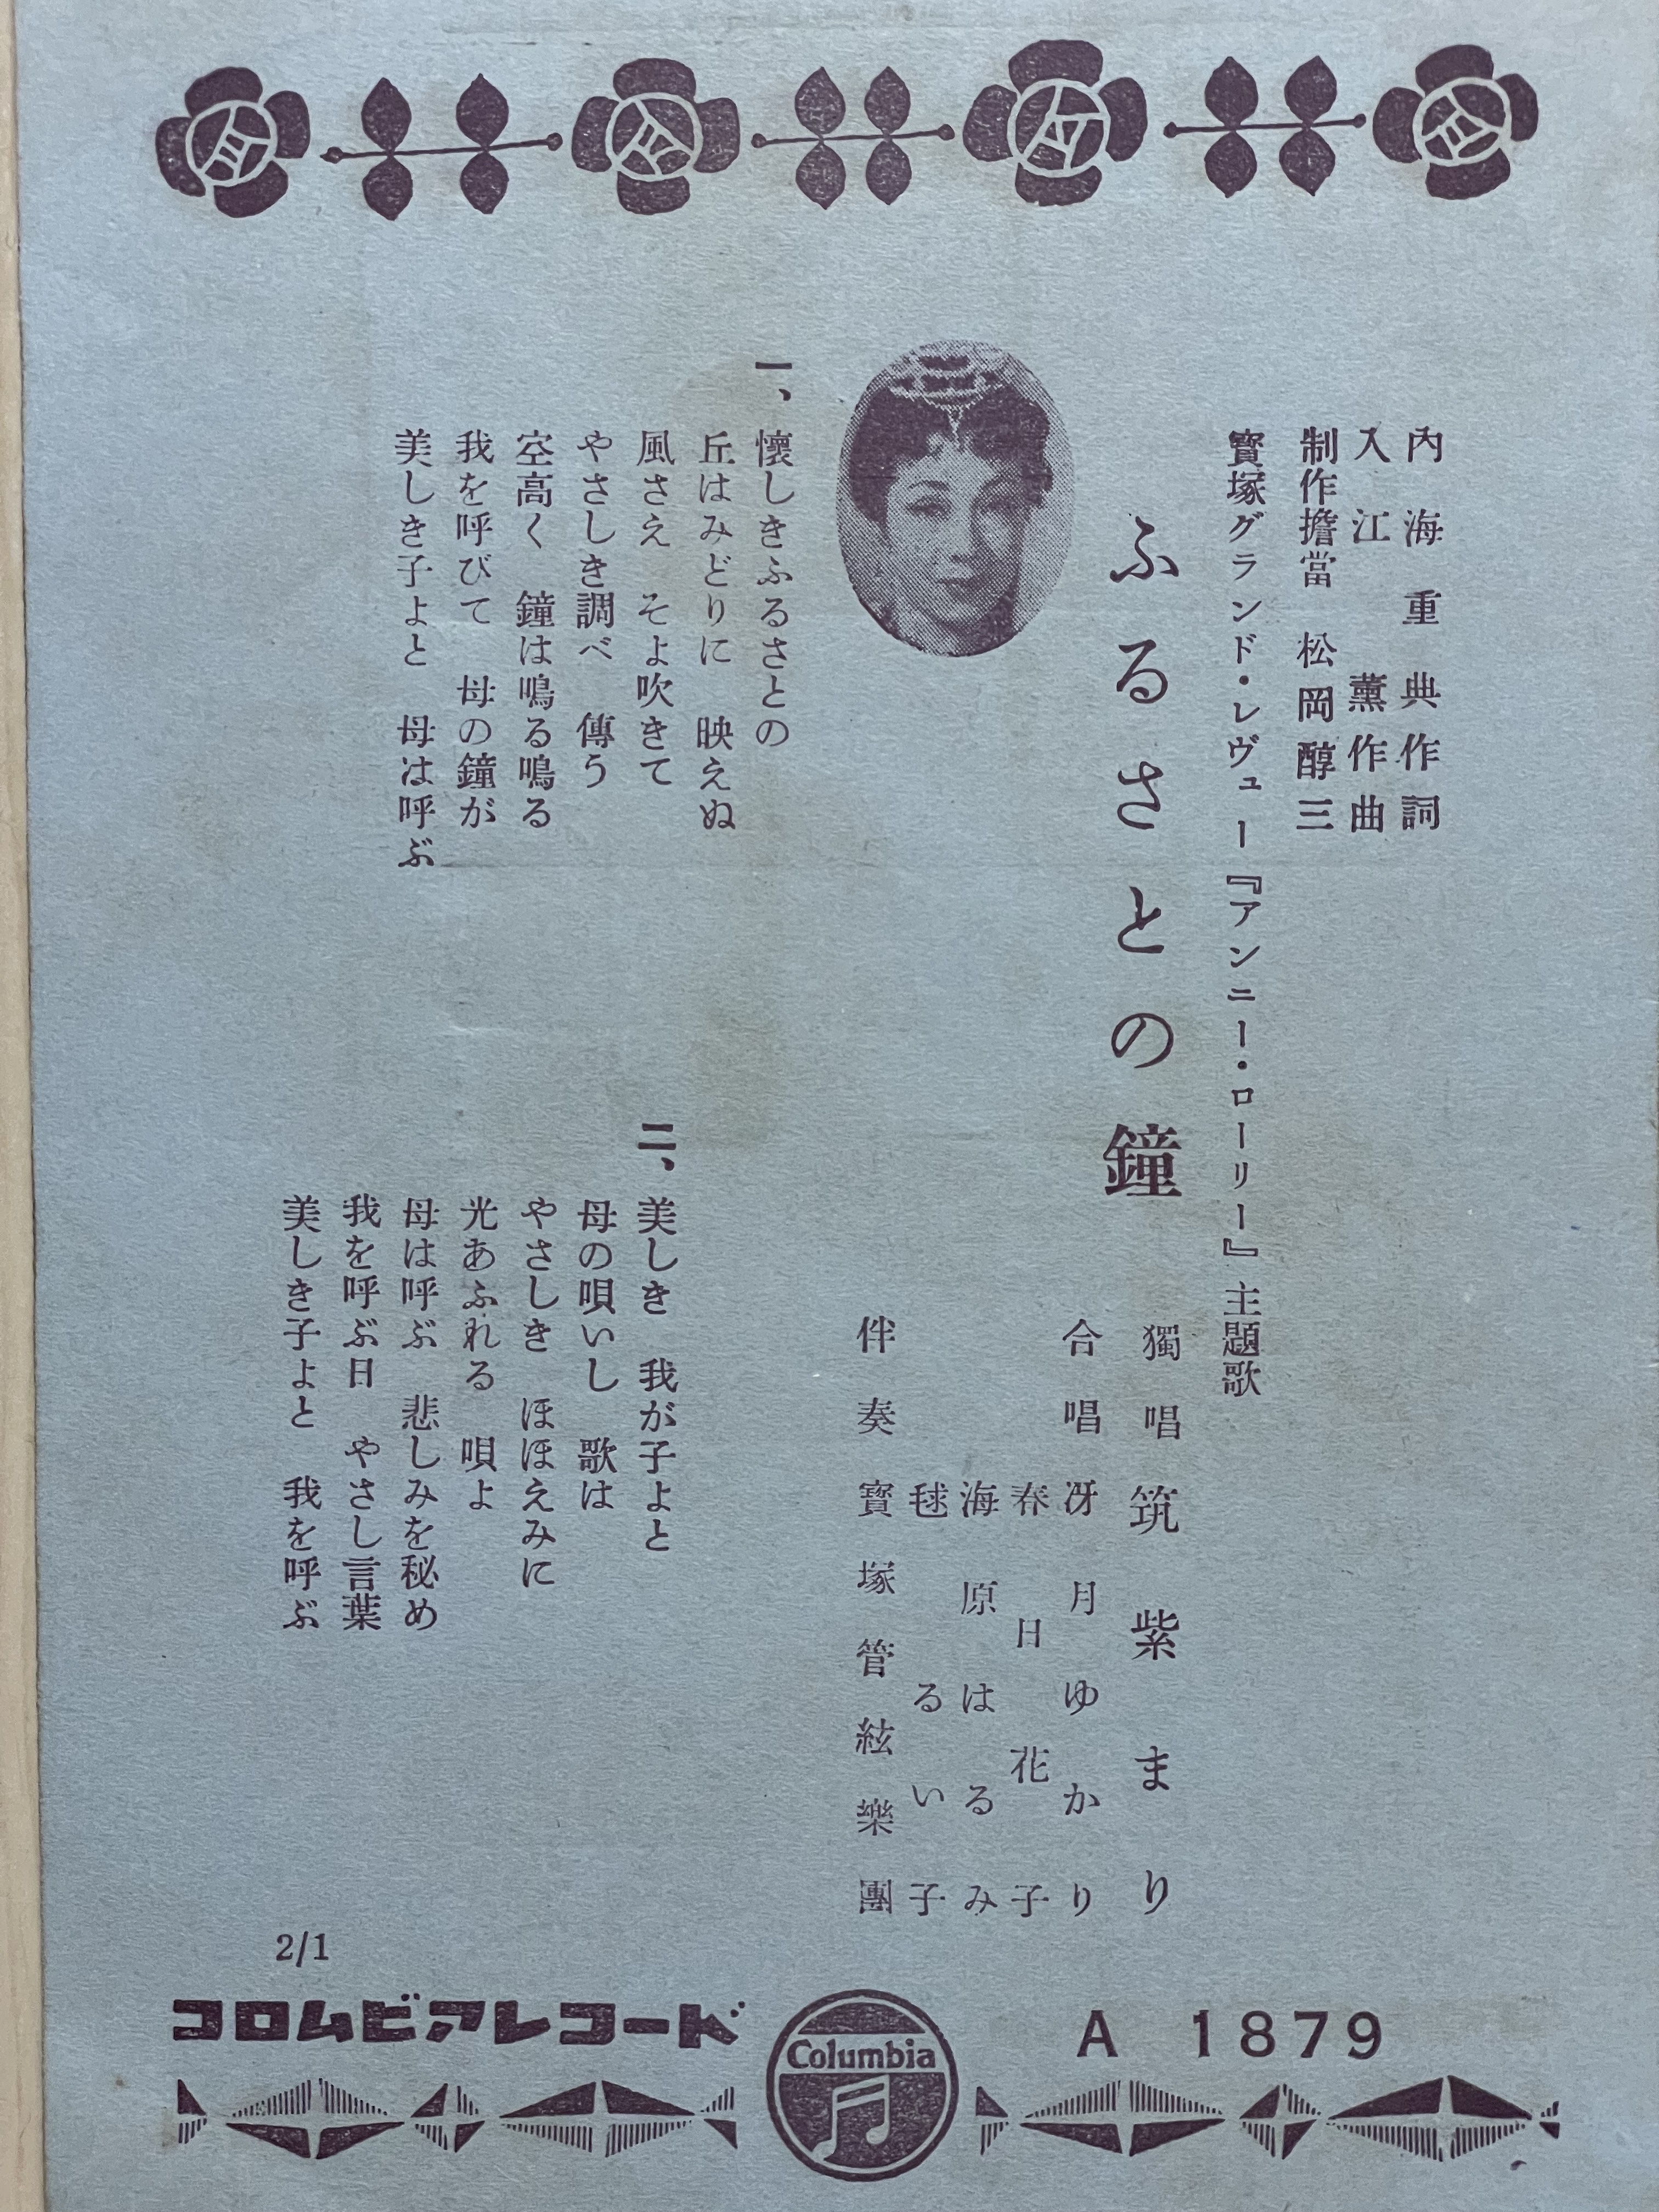 內海重典作詞
入江薰作曲
制作擔當 松岡醇三
寳塚グランド・レヴュー『アンニー・ローリー』主題歌
ふるさとの鐘
獨唱 筑紫まり
合唱 冴月ゆかり
春日花子
海原はるみ
毬るい子
伴奏 寳塚管絃樂團
一、懷しきふるさとの
丘はみどりに 映えぬ
風さえ そよ吹きて
やさしき調べ 傳う
空高く 鐘は鳴る鳴る
我を呼びて 母の鐘が
美しき子よと 母は呼ぶ
二、美しき 我が子よと
母の唄いし 歌は
やさしき ほほえみに
光あふれる 唄よ
母は呼ぶ 悲しみを秘め
我を呼ぶ日 やさし言葉
美しき子よと 我を呼ぶ
2/1
コロムビアレコード
Columbia
A 1879